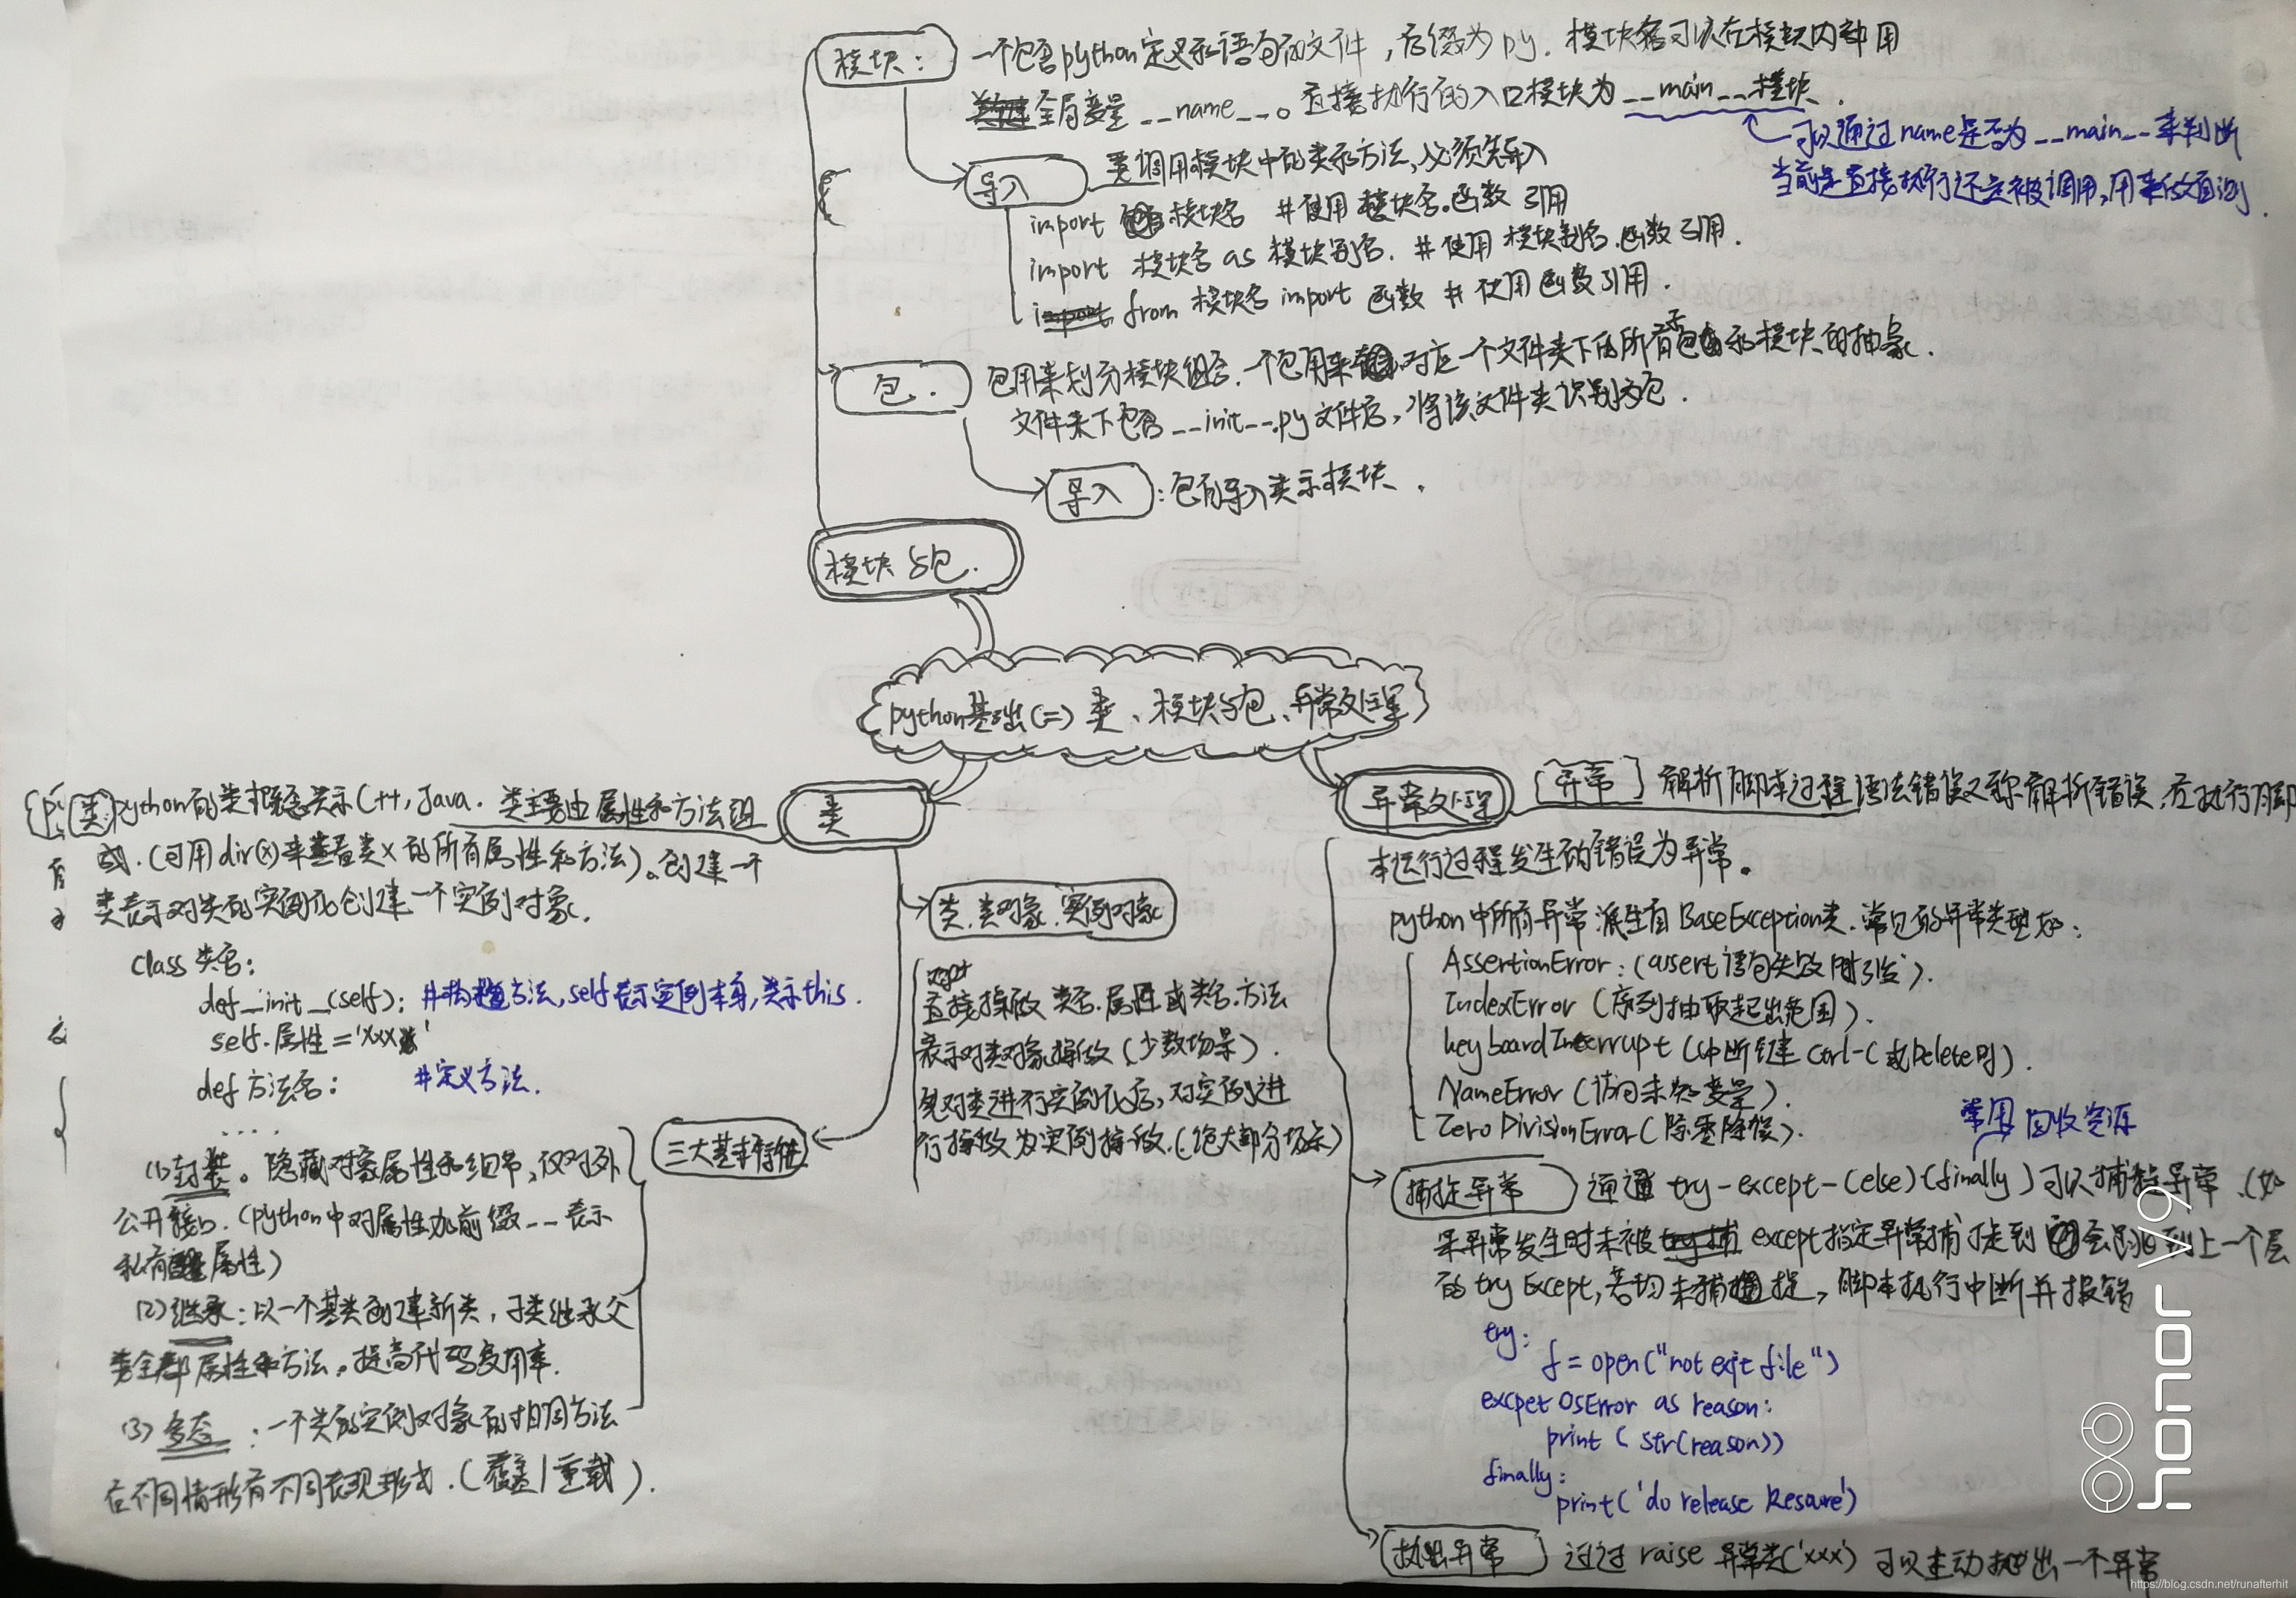 模块： 一个包含python定义和语句的文件，后缀为py. 模块名可以在模块内部用
全局变量 __name__。直接执行的入口模块为__main__模块.
可以通过name是否为__main__来判断
当前是直接执行还是被调用,用来做自测.
导入 要调用模块中的类和方法,必须先导入
import 模块名 #使用 模块名.函数 引用
import 模块名 as 模块别名. #使用 模块别名.函数引用.
from 模块名 import 函数 # 使用函数引用.
包. 包用来划分模块组合. 一个包用来对应一个文件夹下的所有子包和模块的抽象.
文件夹下包含 __init__.py文件后,将该文件夹识别为包.
导入：包的导入类示模块.
模块与包.
python基础(二) 类、模块与包、异常处理
类
类 python的类概念类示C++, Java. 类主要由属性和方法组
成. (可用dir(x)来查看类x的所有属性和方法)。创建一个
类表示对类的实例化创建一个实例对象.
class 类名:
def_init_(self): #构造方法, self表示实例本身,类示this.
self.属性='xxx'
def 方法名: #定义方法.
....
类.类对象.实例对象
直接操做 类名.属性或类名.方法
表示对类对象操做(少数场景).
先对类进行实例化后,对实例进
行操做为实例操做.(绝大部分场景)
三大基本特性
(1)封装。隐藏对象属性和细节,仅对外
公开接口.(python中对属性加前缀__表示
私有属性)
(2)继承：以一个基类创建新类，子类继承父
类全部属性和方法。提高代码复用率.
(3)多态：一个类的实例对象的相同方法
在不同情形有不同表现形式.(覆盖/重载).
异常处理 [异常] 解析脚本过程语法错误又称解析错误,在执行脚
本运行过程发生的错误为异常。
python中所有异常派生自BaseException类.常见的异常类型如：
AssertionError：(assert语句失败时引发).
IndexError (序列抽取超出范围).
keyboardInterrupt (中断键 Ctrl-C 或Delete时).
NameError (访问未知变量).
ZeroDivisionError(除零除候).
常用 回收资源
捕捉异常 通过 try-except-(else)(finally)可以捕捉异常.(如
果异常发生时未被 except指定异常捕捉到会回到上一个层
的try Except,若均未捕捉,脚本执行中断并报错
try:
f = open("not exit file")
excpet OSError as reason:
print ( str(reason))
finally:
print('do release Resoure')
抛出异常 过过 raise 异常类('xxx') 可以主动抛出一个异常
honor V9
https://blog.csdn.net/runafterhit